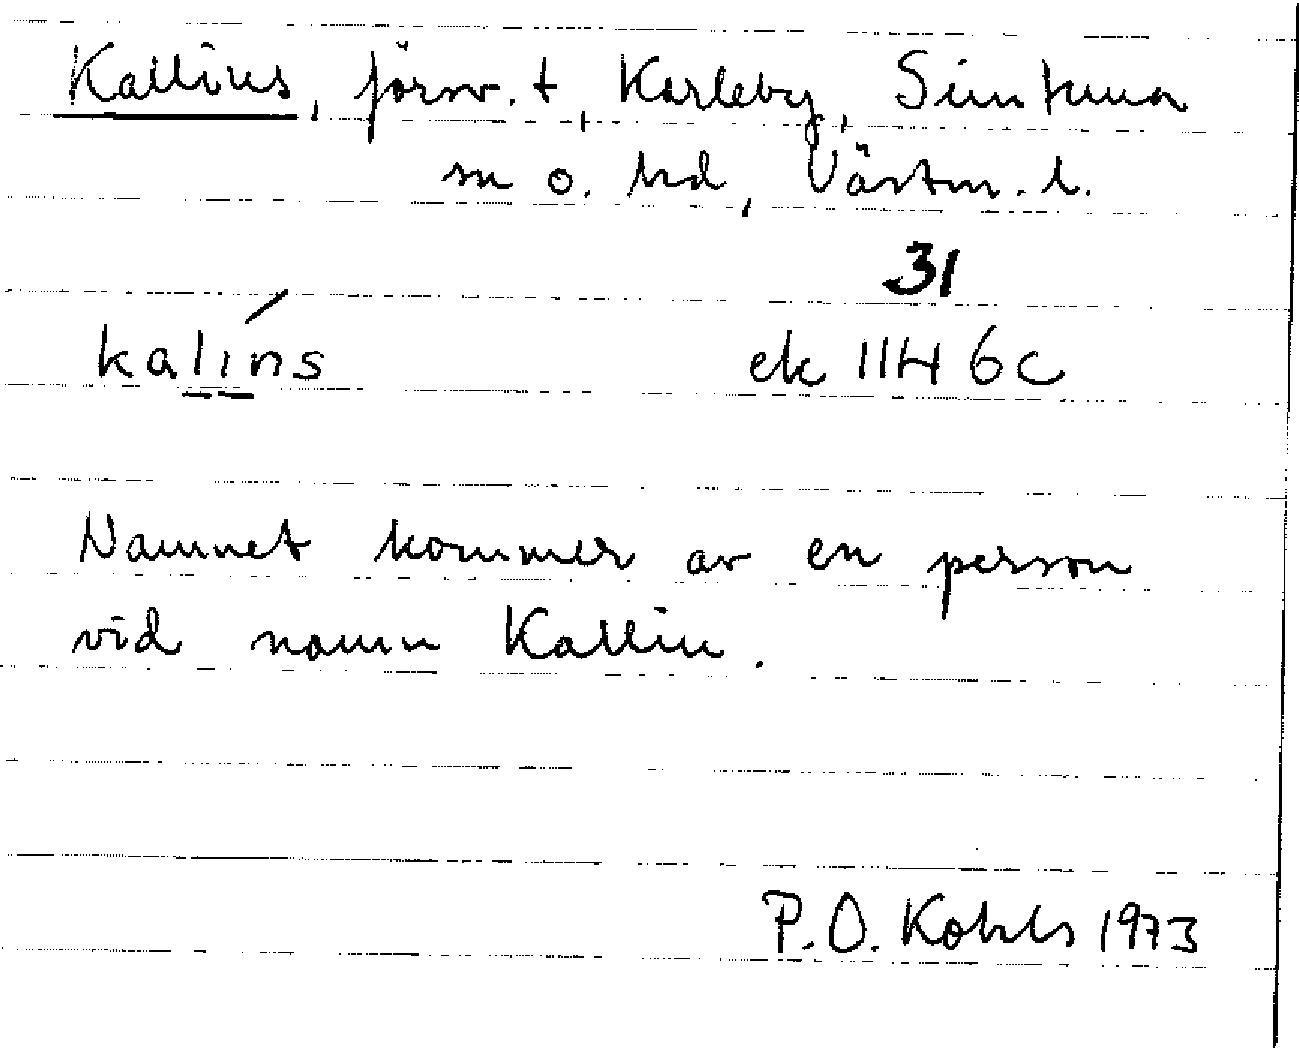 Kallins, försv. t, Karleby, Simtuna
sn o. hd, Västm. l.
31
kalíns ek 11H 6c
Namnet kommer av en person
vid namn Kallin.
P.O. Kohls 1973